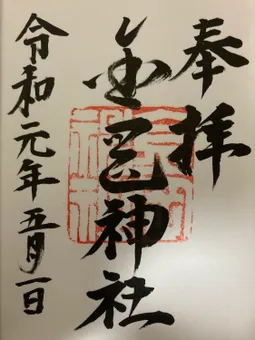 奉拝
金岡神社
令和元年五月一日